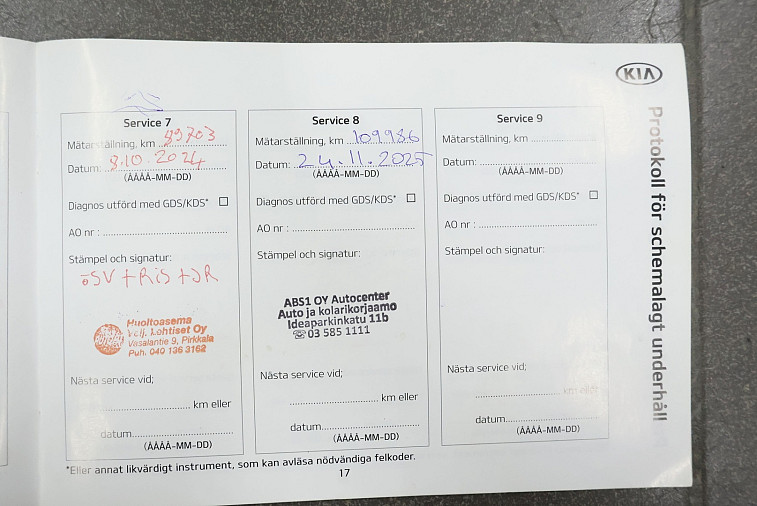 KIA
Protokoll för schemalagt underhåll
Service 7
Mätarställning, km 89703
Datum: 8.10.2024
(ÅÅÅÅ-MM-DD)
Diagnos utförd med GDS/KDS*
AO nr :
Stämpel och signatur:
ÖSV + RiS + JR
Huoltoasema
Velj. Lohtiset Oy
Vasalantie 9, Pirkkala
Puh. 040 136 3162
Nästa service vid;
km eller
datum
(ÅÅÅÅ-MM-DD)
Service 8
Mätarställning, km 109986
Datum: 24.11.2025
(ÅÅÅÅ-MM-DD)
Diagnos utförd med GDS/KDS*
AO nr :
Stämpel och signatur:
ABS1 OY Autocenter
Auto ja kolarikorjaamo
Ideaparkinkatu 11b
☏03 585 1111
Nästa service vid;
km eller
datum
(ÅÅÅÅ-MM-DD)
Service 9
Mätarställning, km
Datum:
(ÅÅÅÅ-MM-DD)
Diagnos utförd med GDS/KDS*
AO nr :
Stämpel och signatur:
Nästa service vid;
km eller
datum
(ÅÅÅÅ-MM-DD)
*Eller annat likvärdigt instrument, som kan avläsa nödvändiga felkoder.
17